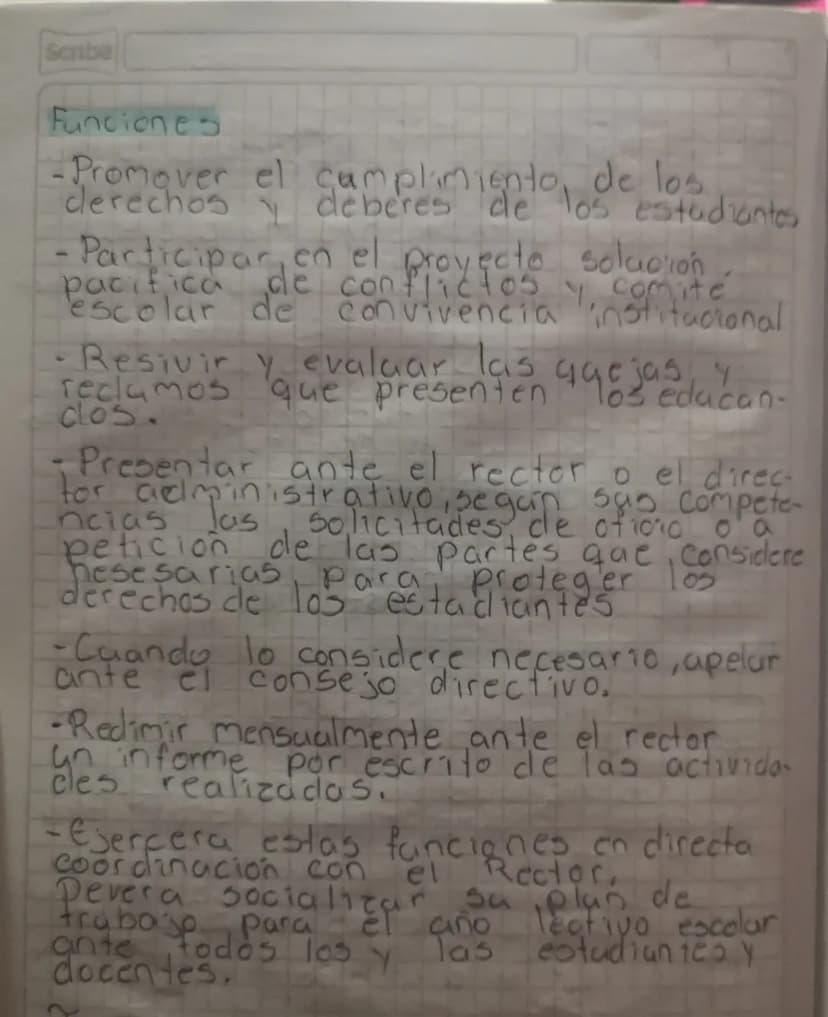 Scribe
Funciones
- Promover el cumplimiento, de los
derechos y deberes de los estudiantes
- Participar en el proyecto solucion
pacifica de conflictos y comite
escolar de convivencia institucional
- Resivir y evaluar las quejas y
reclamos que presenten los educan-
dos.
- Presentar ante el rector o el direc-
tor administrativo, segun sus compete-
ncias las solicitudes de oficio o a
peticion de las partes que considere
nesesarias para proteger los
derechos de los estudiantes
- Cuando lo considere necesario, apelar
ante el consejo directivo.
- Redimir mensualmente ante el rector
un informe por escrito de las activida-
des realizadas.
- Ejercera estas funciones en directa
coordinacion con el Rector.
Devera socializar su plan de
trabajo para el año lectivo escolar
ante todos los y las estudiantes y
docentes.